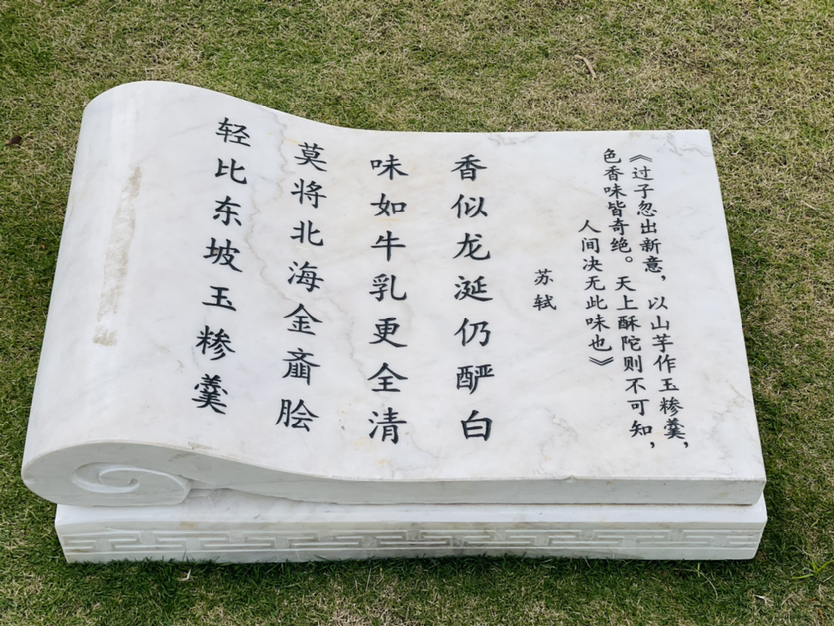 《过子忽出新意，以山芋作玉糁羹，
色香味皆奇绝。天上酥陀则不可知，
人间决无此味也》
苏轼
香似龙涎仍酽白
味如牛乳更全清
莫将北海金齑脍
轻比东坡玉糁羹